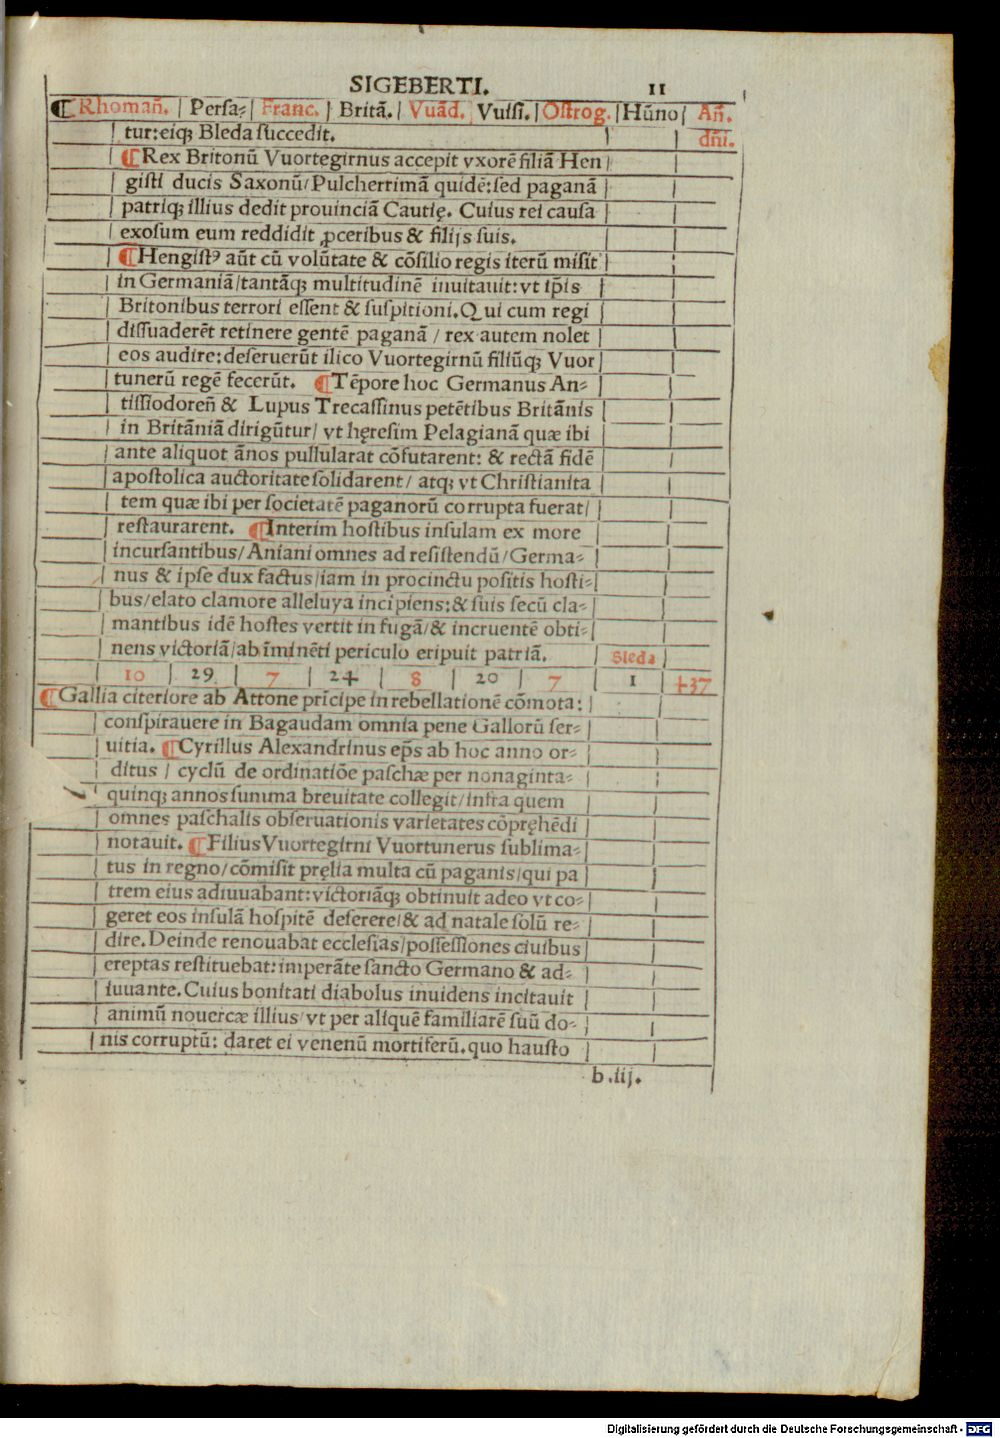 SIGEBERTI. 11
¶ Rhomañ. | Persaꝫ | Franc. | Britã. | Vuãd. | Vuisi. | Ostrog. | Hũno | Añ.
dñi.
tur: eiqꝫ Bleda succedit.
¶ Rex Britonũ Vuortegirnus accepit vxorẽ filiã Hen
gisti ducis Saxonũ/ Pulcherrimã quidẽ: sed paganã
patriqꝫ illius dedit prouinciã Cautię. Cuius rei causa
exosum eum reddidit ꝓceribus & filijs suis.
¶ Hengistꝰ aũt cũ volũtate & cõsilio regis iterũ misit
in Germaniã/ tantãqꝫ multitudinẽ inuitauit: vt ip̃is
Britonibus terrori essent & suspitioni. Qui cum regi
dissuaderẽt retinere gentẽ paganã / rex autem nolet
eos audire: deseruerũt ilico Vuortegirnũ filiũqꝫ Vuor
tunerũ regẽ fecerũt. ¶ Tẽpore hoc Germanus An⸗
tissiodoreñ & Lupus Trecassinus petẽtibus Britãnis
in Britãniã dirigũtur/ vt hęresim Pelagianã quæ ibi
ante aliquot ãnos pullularat cõfutarent: & rectã fidẽ
apostolica auctoritate solidarent/ atqꝫ vt Christianita
tem quæ ibi per societatẽ paganorũ corrupta fuerat/
restaurarent. ¶ Interim hostibus insulam ex more
incursantibus/ Aniani omnes ad resistendũ/ Germa⸗
nus & ipse dux factus/ iam in procinctu positis hosti⸗
bus/ elato clamore alleluya incipiens: & suis secũ cla⸗
mantibus idẽ hostes vertit in fugã/ & incruentẽ obti⸗
nens victoriã/ ab ĩminẽti periculo eripuit patriã. Bleda
10 | 29 | 7 | 24 | 8 | 20 | 7 | 1 | 437
¶ Gallia citeriore ab Attone prĩcipe in rebellationẽ cõmota:
conspirauere in Bagaudam omnia pene Gallorũ ser⸗
uitia. ¶ Cyrillus Alexandrinus ep̃s ab hoc anno or⸗
ditus / cyclũ de ordinatiõe paschæ per nonaginta⸗
quinqꝫ annos summa breuitate collegit/ infra quem
omnes paschalis obseruationis varietates cõpręhẽdi
notauit. ¶ Filius Vuortegirni Vuortunerus sublima⸗
tus in regno/ cõmisit pręlia multa cũ paganis/ qui pa
trem eius adiuuabant: victoriãqꝫ obtinuit adeo vt co⸗
geret eos insulã hospitẽ deserere/ & ad natale solũ re⸗
dire. Deinde renouabat ecclesias/ possessiones ciuibus
ereptas restituebat: imperãte sancto Germano & ad⸗
iuuante. Cuius bonitati diabolus inuidens incitauit
animũ nouercæ illius/ vt per aliquẽ familiarẽ suũ do⸗
nis corruptũ: daret ei venenũ mortiferũ. quo hausto
b.iij.
Digitalisierung gefördert durch die Deutsche Forschungsgemeinschaft - DFG